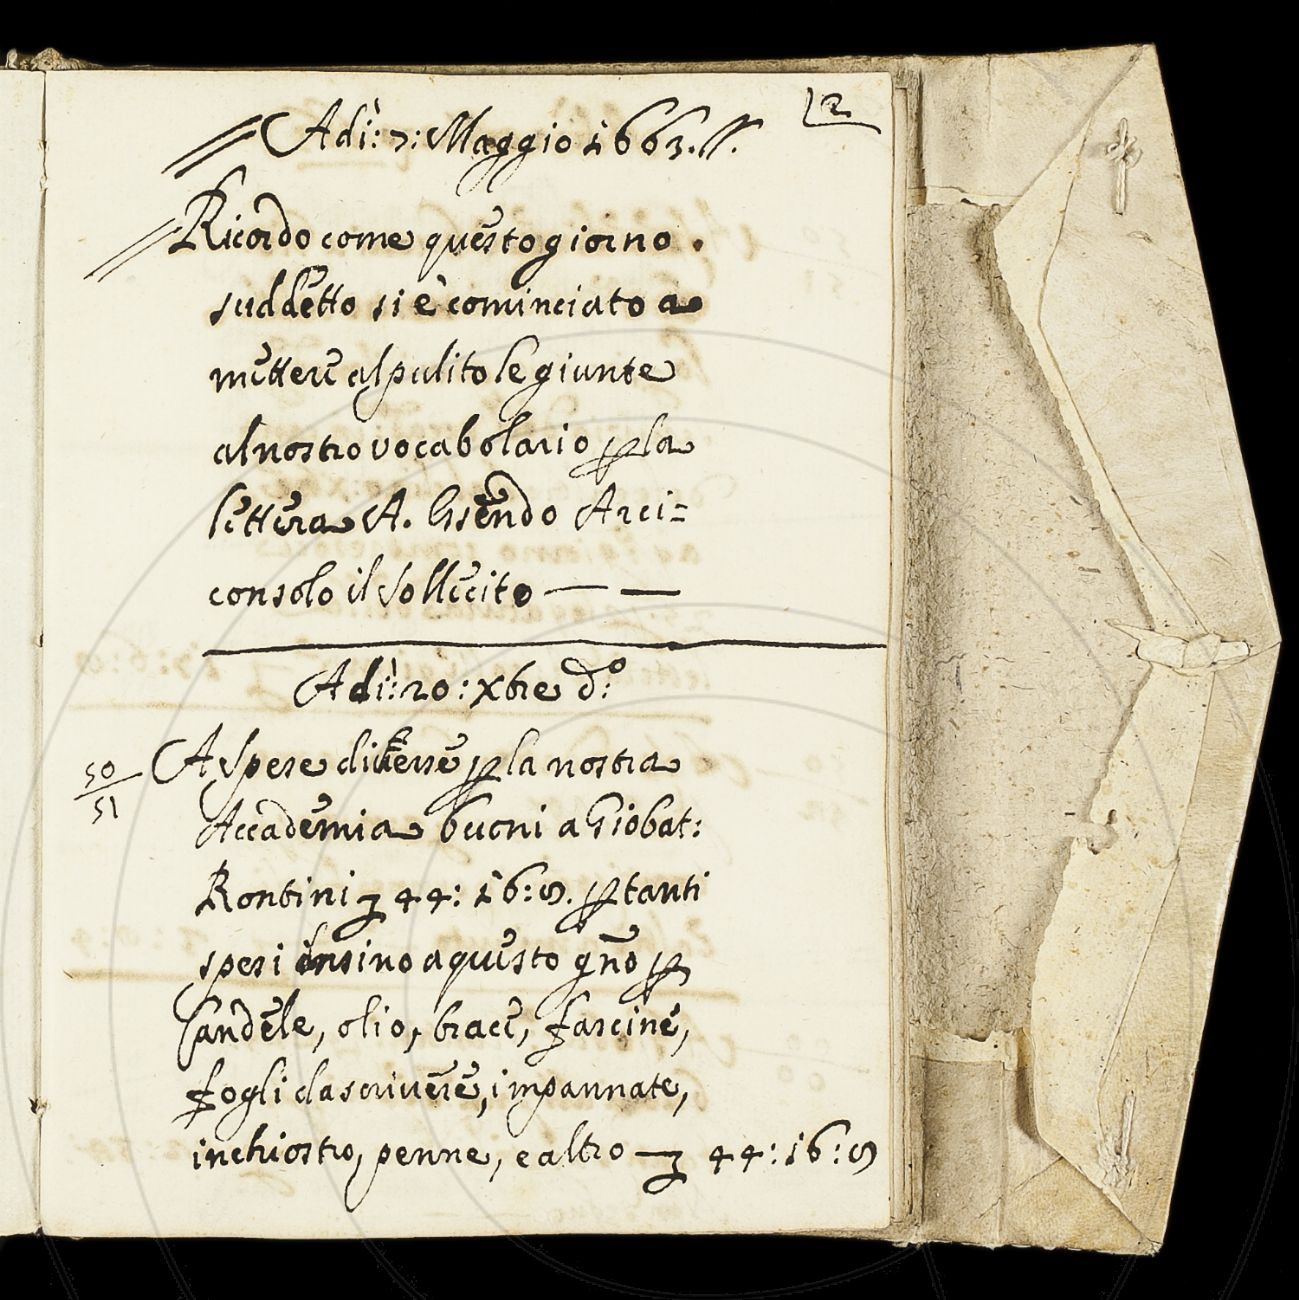 12
Adì: 7: Maggio 1663.
Ricordo come questo giorno.
suddetto si è cominciato a
mettere al pulito le giunte
al nostro vocabolario p la
lettera A. Essendo Arci=
consolo il Sollecito — —
Adì: 20: Xbre d.º
50
51
A spese diverse p la nostra
Accademia buoni a Giobat:
Rontini 44: 16: 8. p tanti
spesi insino a questo gño p
Candele, olio, brace, fascine,
fogli da scrivere, impannate,
inchiostro, penne, e altro — 44: 16: 8